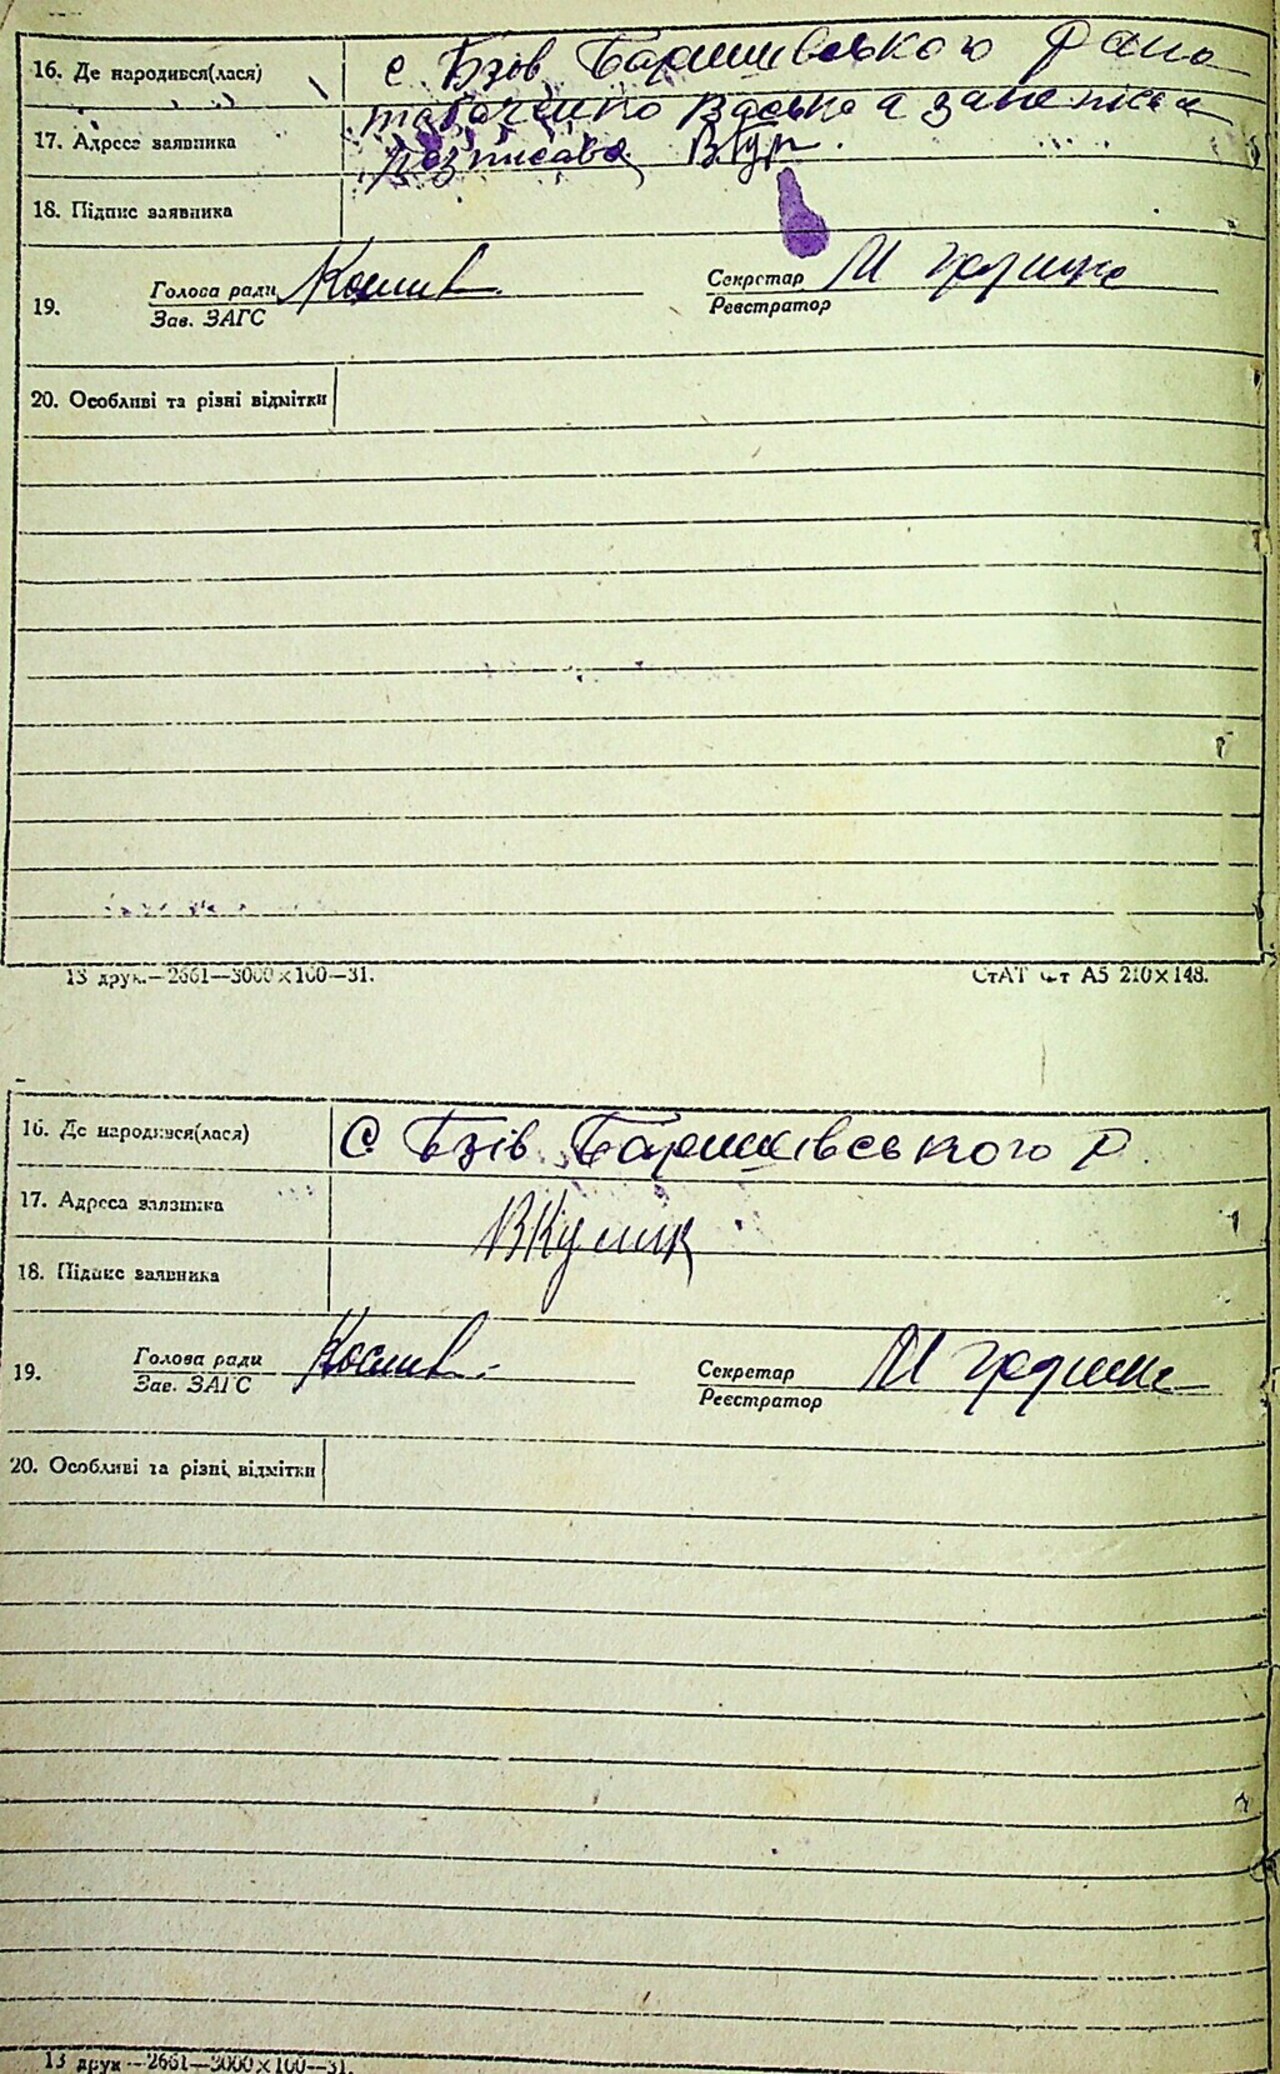 16. Де народився(лася) с Бзів Баришевською Рано
17. Адреса заявника
розписався
18. Підпис заявника
19. Голова ради
Зав. ЗАГС
Секретар
Реєстратор
20. Особливі та різні відмітки
13 друк.—2661—3000×100—31. СтАТ Фт А5 210×148.
16. Де народився(лася) С Бзів Баришівського Р.
17. Адреса заявника ВКулик
18. Підпис заявника
19. Голова ради
Зав. ЗАГС
Секретар
Реєстратор
20. Особливі та різні відмітки
13 друк.—2661—3000×100—31.